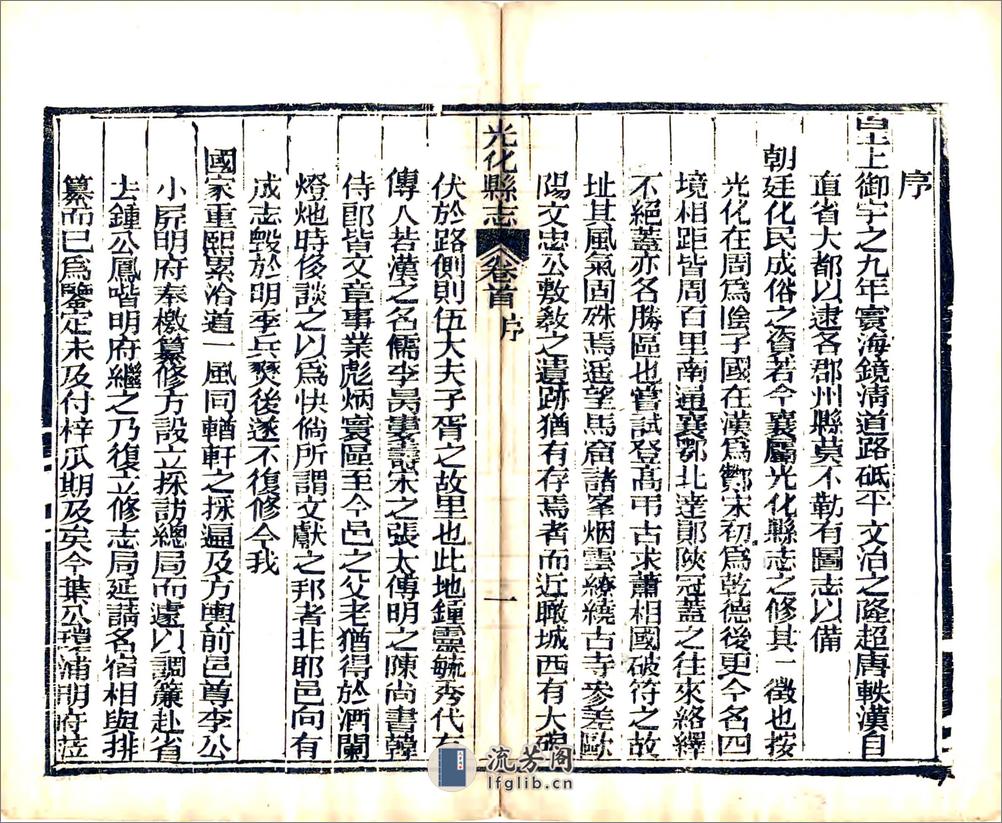 序
皇上御宇之九年寰海鏡清道路砥平文治之隆超唐軼漢自
直省大都以逮各郡州縣莫不勒有圖志以備
朝廷化民成俗之資若今襄屬光化縣志之修其一徵也按
光化在周爲陰子國在漢爲酇宋初爲乾德後更今名四
境相距皆周百里南通襄鄂北達鄖陝冠蓋之往來絡繹
不絕蓋亦名勝區也嘗試登高弔古求蕭相國破符之故
址其風氣固殊焉遥望馬窟諸峯烟雲繚繞古寺參差歐
陽文忠公敷敎之遺跡猶有存焉者而近瞰城西有大碑
光化縣志 卷首 序 一
伏於路側則伍大夫子胥之故里也此地鍾靈毓秀代有
傳人若漢之名儒李昺婁壽宋之張太傅明之陳尚書韓
侍郎皆文章事業彪炳寰區至今邑之父老猶得於酒闌
燈灺時侈談之以爲快倘所謂文獻之邦者非耶邑向有
成志毀於明季兵燹後遂不復修今我
國家重熙累洽道一風同輶軒之採遍及方輿前邑尊李公
小屏明府奉檄纂修方設立採訪總局而遽以調簾赴省
去鍾公鳳喈明府繼之乃復立修志局延請名宿相與排
纂而已爲鑒定未及付梓瓜期及矣今葉公瓊浦明府莅
流芳閣
lfglib.cn